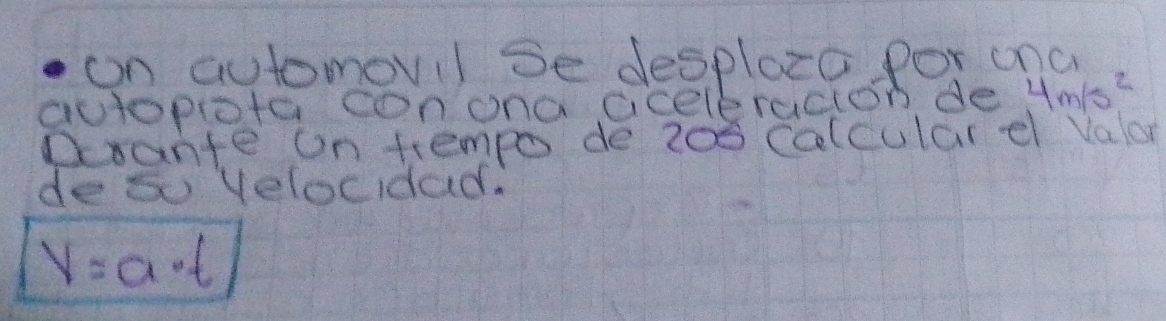 • Un automovil Se desplaza por una
autopista con una aceleracion de 4m/s²
Durante un tiempo de 20s calcular el Valor
de su velocidad.
V=a·t